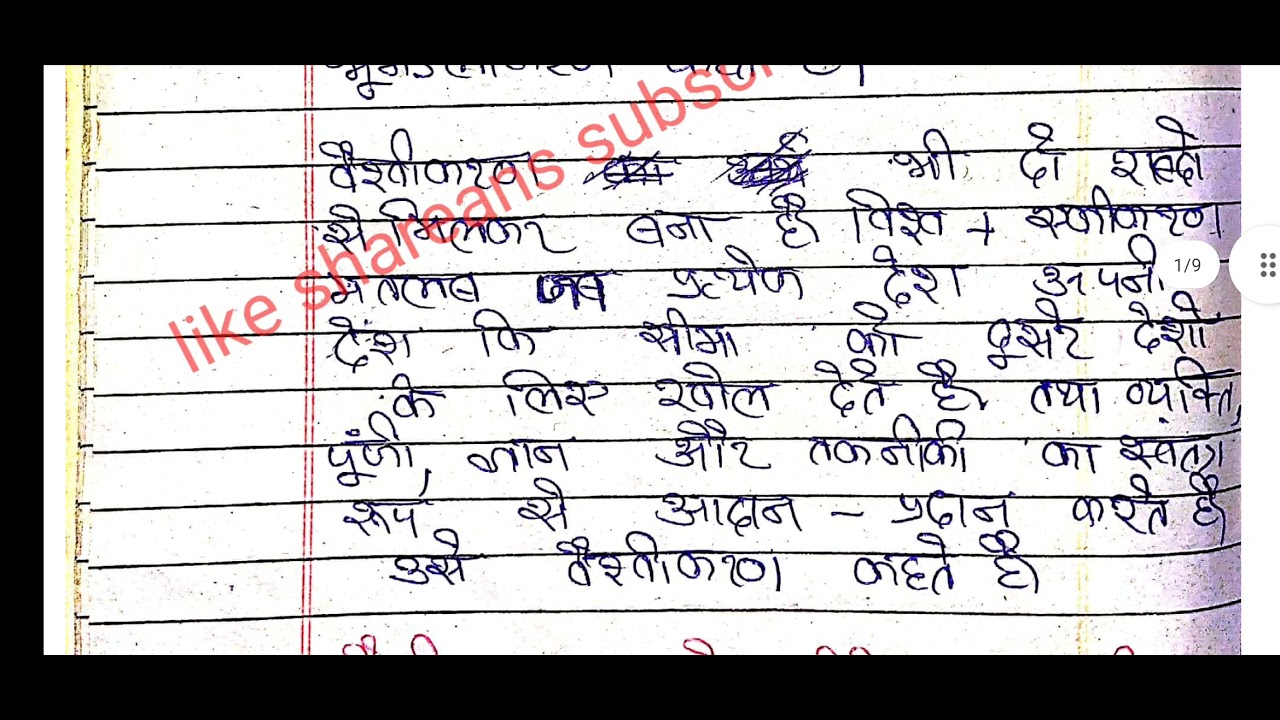 वैश्वीकरण भी दो शब्दो
से मिलकर बना है विश्व + एकीकरण
मतलब जब प्रत्येक देश अपनी
देश कि सीमा को दूसरे देशो
के लिए खोल देते है तथा व्यक्ति,
पूंजी, ज्ञान और तकनीकी का स्वतंत्र
रूप से आदान - प्रदान करते है
उसे वैश्वीकरण कहते है
like shareans subscr
1/9